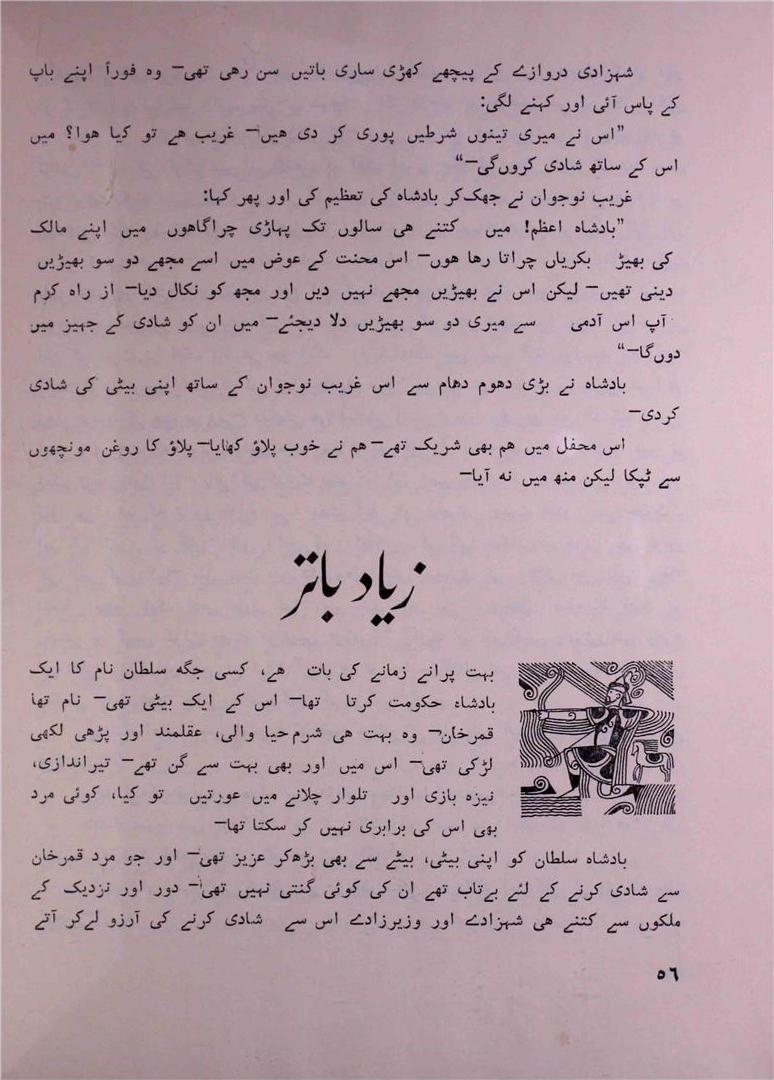 شہزادی دروازے کے پیچھے کھڑی ساری باتیں سن رھی تھی— وہ فوراً اپنے باپ
کے پاس آئی اور کہنے لگی:
”اس نے میری تینوں شرطیں پوری کر دی ھیں— غریب ھے تو کیا ھوا؟ میں
اس کے ساتھ شادی کروں‌گی—“
غریب نوجوان نے جھک‌کر بادشاہ کی تعظیم کی اور پھر کہا:
”بادشاہ اعظم! میں کتنے ھی سالوں تک پہاڑی چراگاھوں میں اپنے مالک
کی بھیڑ بکریاں چراتا رھا ھوں— اس محنت کے عوض میں اسے مجھے دو سو بھیڑیں
دینی تھیں— لیکن اس نے بھیڑیں مجھے نہیں دیں اور مجھ کو نکال دیا— از راہ کرم
آپ اس آدمی سے میری دو سو بھیڑیں دلا دیجئے— میں ان کو شادی کے جہیز میں
دوں‌گا—“
بادشاہ نے بڑی دھوم دھام سے اس غریب نوجوان کے ساتھ اپنی بیٹی کی شادی
کردی—
اس محفل میں ھم بھی شریک تھے— ھم نے خوب پلاؤ کھایا— پلاؤ کا روغن مونچھوں
سے ٹپکا لیکن منھ میں نہ آیا—
زیاد باتر
بہت پرانے زمانے کی بات ھے، کسی جگہ سلطان نام کا ایک
بادشاہ حکومت کرتا تھا— اس کے ایک بیٹی تھی— نام تھا
قمرخان— وہ بہت ھی شرم‌حیا والی، عقلمند اور پڑھی لکھی
لڑکی تھی— اس میں اور بھی بہت سے گن تھے— تیراندازی،
نیزہ بازی اور تلوار چلانے میں عورتیں تو کیا، کوئی مرد
بھی اس کی برابری نہیں کر سکتا تھا—
بادشاہ سلطان کو اپنی بیٹی، بیٹے سے بھی بڑھ‌کر عزیز تھی— اور جو مرد قمرخان
سے شادی کرنے کے لئے بےتاب تھے ان کی کوئی گنتی نہیں تھی— دور اور نزدیک کے
ملکوں سے کتنے ھی شہزادے اور وزیرزادے اس سے شادی کرنے کی آرزو لے‌کر آتے
۵۶